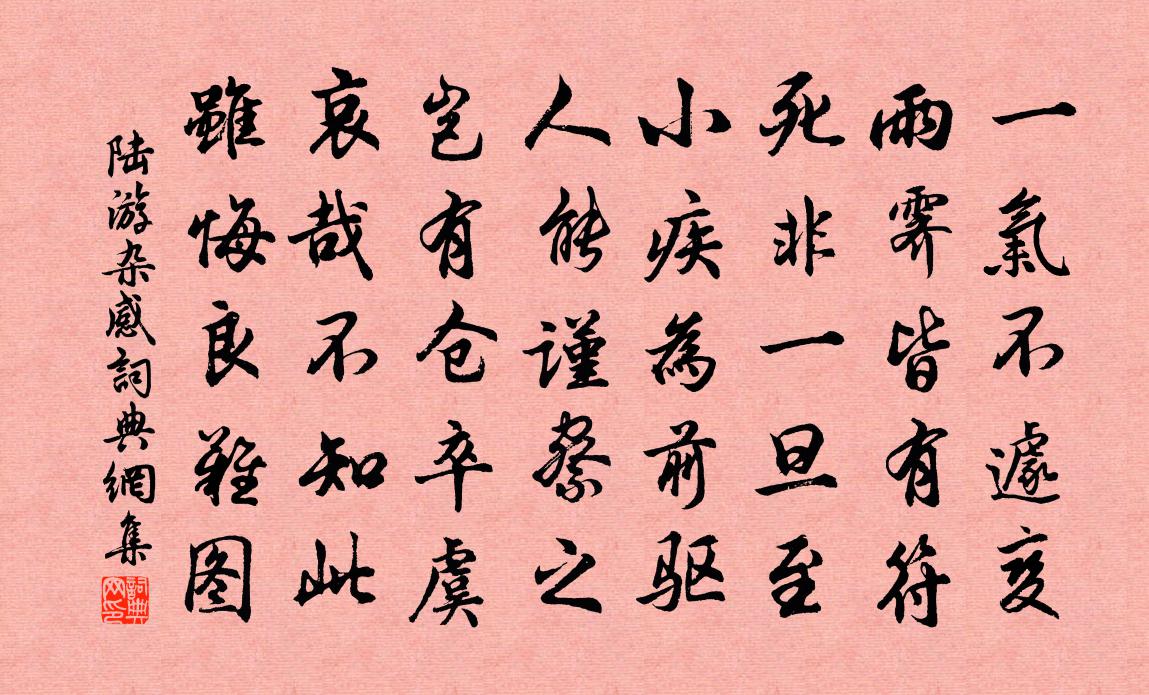 一氣不遽变
雨霁皆有符
死非一旦至
小疾為前驱
人能謹察之
岂有仓卒虞
哀哉不知此
雖悔良難图
陆游杂感詞典網集
詞典网印